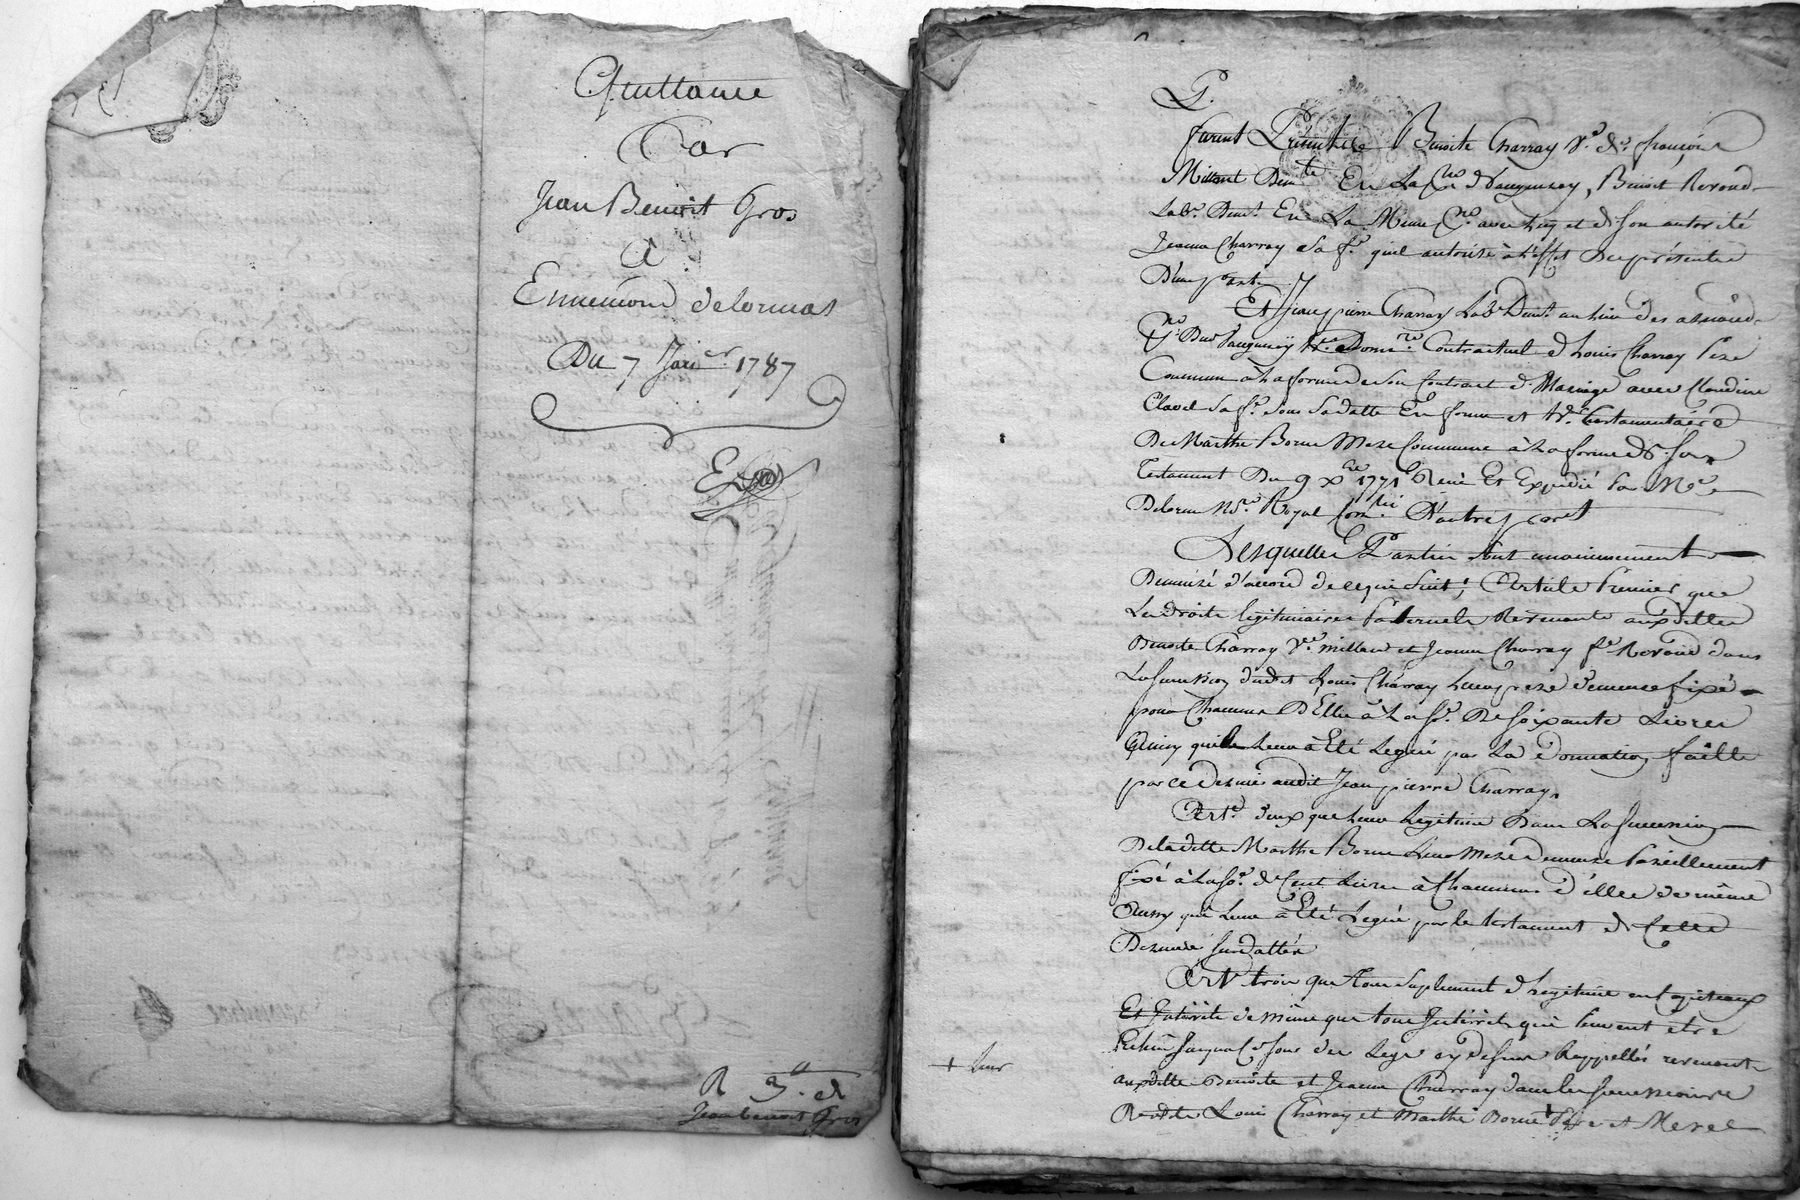 Quittance
Par
Jean Benoit Gros
à
Ennemond delormas
Du 7 Janer 1787
Exp
R 3
Jean benoit Gros
furent Benoite Charray Ve. de françois
Millant Demte En La d'vaugneray, Benoit Revoud
Labr. Demt. En La Meme avec luy et de Son autorité
Jeanne Charray Sa fe. quil autorise à l'effet des présentes
D'une part
Et Jean pierre Charray Labr Demt. au lieu des
Contractuel de Louis Charray Pere
Commun à La forme de Son Contract de Mariage avec Claudine
Clavel Sa fe. Sous Sa datte En forme et hr. testamentaire
De Marthe Borne Mere Commune à La forme de Son
Testament Du 9 xbre 1771 Reçu Et Expedié Par Me
Delorme Nre. Royal D'autre part
Lesquelles Parties Sont unanimement
Demeuré d'accord de ce qui Suit; Article Premier que
Les droits legitimaires Paternels Revenants auxdittes
Benoite Charray Ve. millant et Jeanne Charray fe. Revoud dans
La Succession dudit Louis Charray Leur pere demeure fixé
pour Chacune D'Elle à La Se. De Soixante Livres
Ainsy quil Leur à Eté Legué par La donnation faitte
par ce dernier audit Jean pierre Charray.
Arte. deux que Leur Legitime Dans La Succession
De laditte Marthe Borne Leur Mere demeure Pareillement
fixé à La Se. de Cent Livres à Chacune d'elles de même
Ainsy quil Leur à Eté Legué par le testament de Celle
Derniere Susdatté
Arte. trois que tous Suplement de legitime en Capiteaux
Et Intérêts de même que tous Intérêts qui peuvent etre
Echus Jusqu'a Ce Jour des Legs cy dessus Rappellés revenants
auxditte Benoite et Jeanne Charray dans les Successions
Desdits Louis Charray et Marthe Borne + Pere et Mere
+ Leur